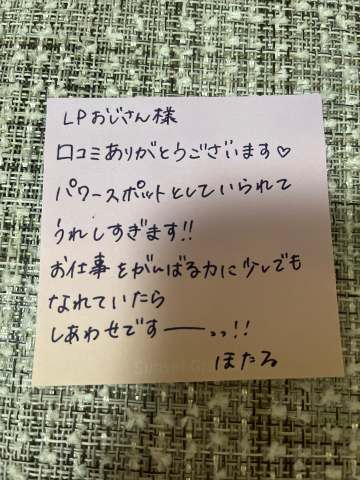 LPおじさん様
口コミありがとうございます♡
パワースポットとしていられて
うれしすぎます!!
お仕事をがんばる力に少しでも
なれていたら
しあわせですーーっっ!!
ほたる